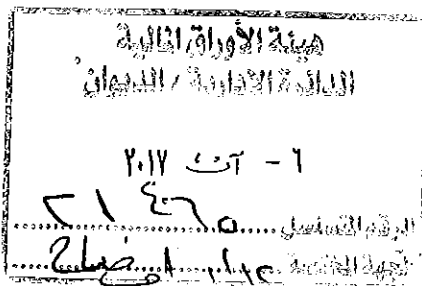 هيئة الأوراق المالية
الدائرة الإدارية / الديوان
٦ - آب ٢٠١٧
الرقم المتسلسل
الجهة المختصة الإفصاح